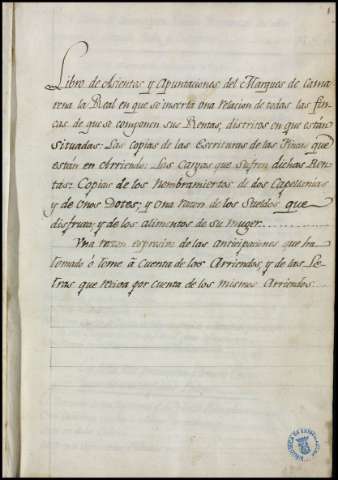 Libro de Asientos y Apuntaciones del Marques de Cama
rena la Real en que se inserta una relacion de todas las fin
cas de que se componen sus Rentas, distritos en que están
situadas: Las copias de las Escrituras de las fincas que
están en Arriendo: Las Cargas que sufren dichas Ren
tas: Copias de los Nombramientos de dos Capellanias
y de Unos Dotes; y Una razon de los Sueldos que
disfruta; y de los alimentos de su muger
Una razon expresiva de las anticipaciones que ha
tomado ó tome á Cuenta de los Arriendos, y de las Le
tras que reciva por cuenta de los mismos Arriendos
BIBLIOTECA DE